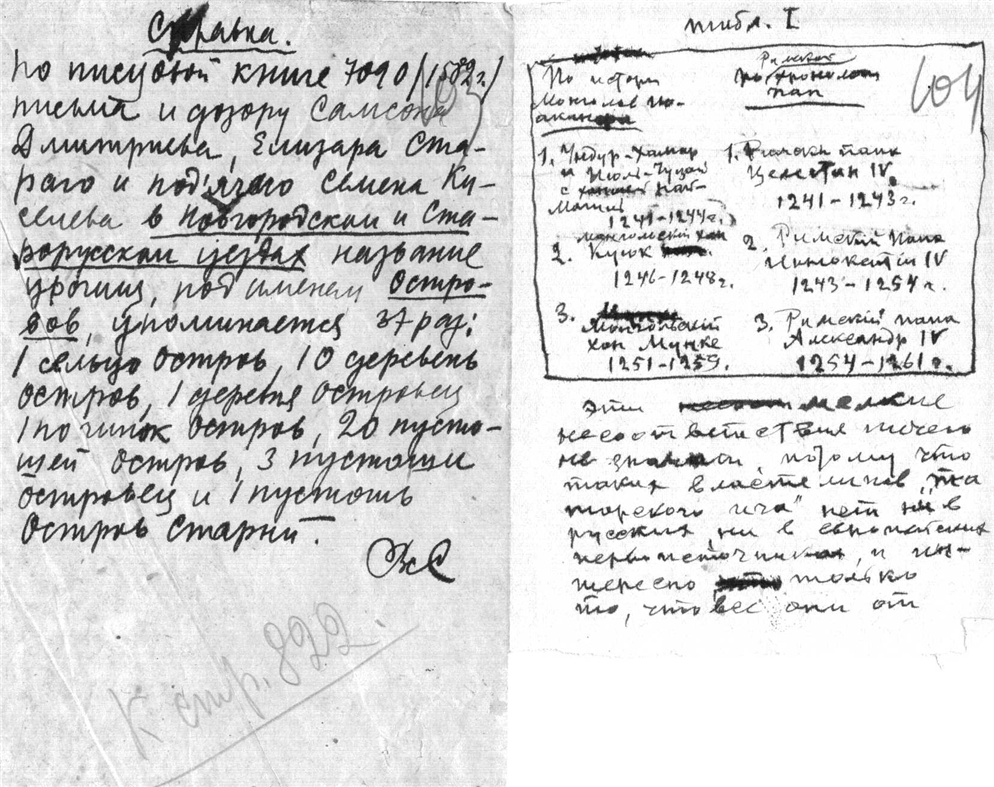 Справка.
По писцовой книге 7090/1582 г./
письма и дозору Самсона
Дмитриева, Елизара Ста-
раго и подъячаго Семена Ки-
селева в Новгородской и Ста-
рорусской уездах название
урочищ, под именем Остро-
вов, упоминается 37 раз:
1 сельцо Остров, 10 деревень
Остров, 1 деревня Островец
1 починок Остров, 20 пусто-
шей Остров, 3 пустоши
Островец и 1 пустошь
Остров Старый.
К стр. 822.
табл. I
104
По истории
Монголов
Римских
по хронологии
пап
1.
1241-1244г.
1. Римский папа
Целестин IV
1241-1243г.
монгольский хан
2. Куюк
1246-1248г.
2. Римский папа
Иннокентий IV
1243-1254г.
3.
Монгольский
хан Мунке
1251-1259.
3. Римский папа
Александр IV
1254-1261г.
Эти мелкие
несоответствия ничего
не значат, потому что
таких властелинов „та
тарского ига" нет ни в
русских, ни в европейских
первоисточниках, и ин-
тересно только
то, что все они от